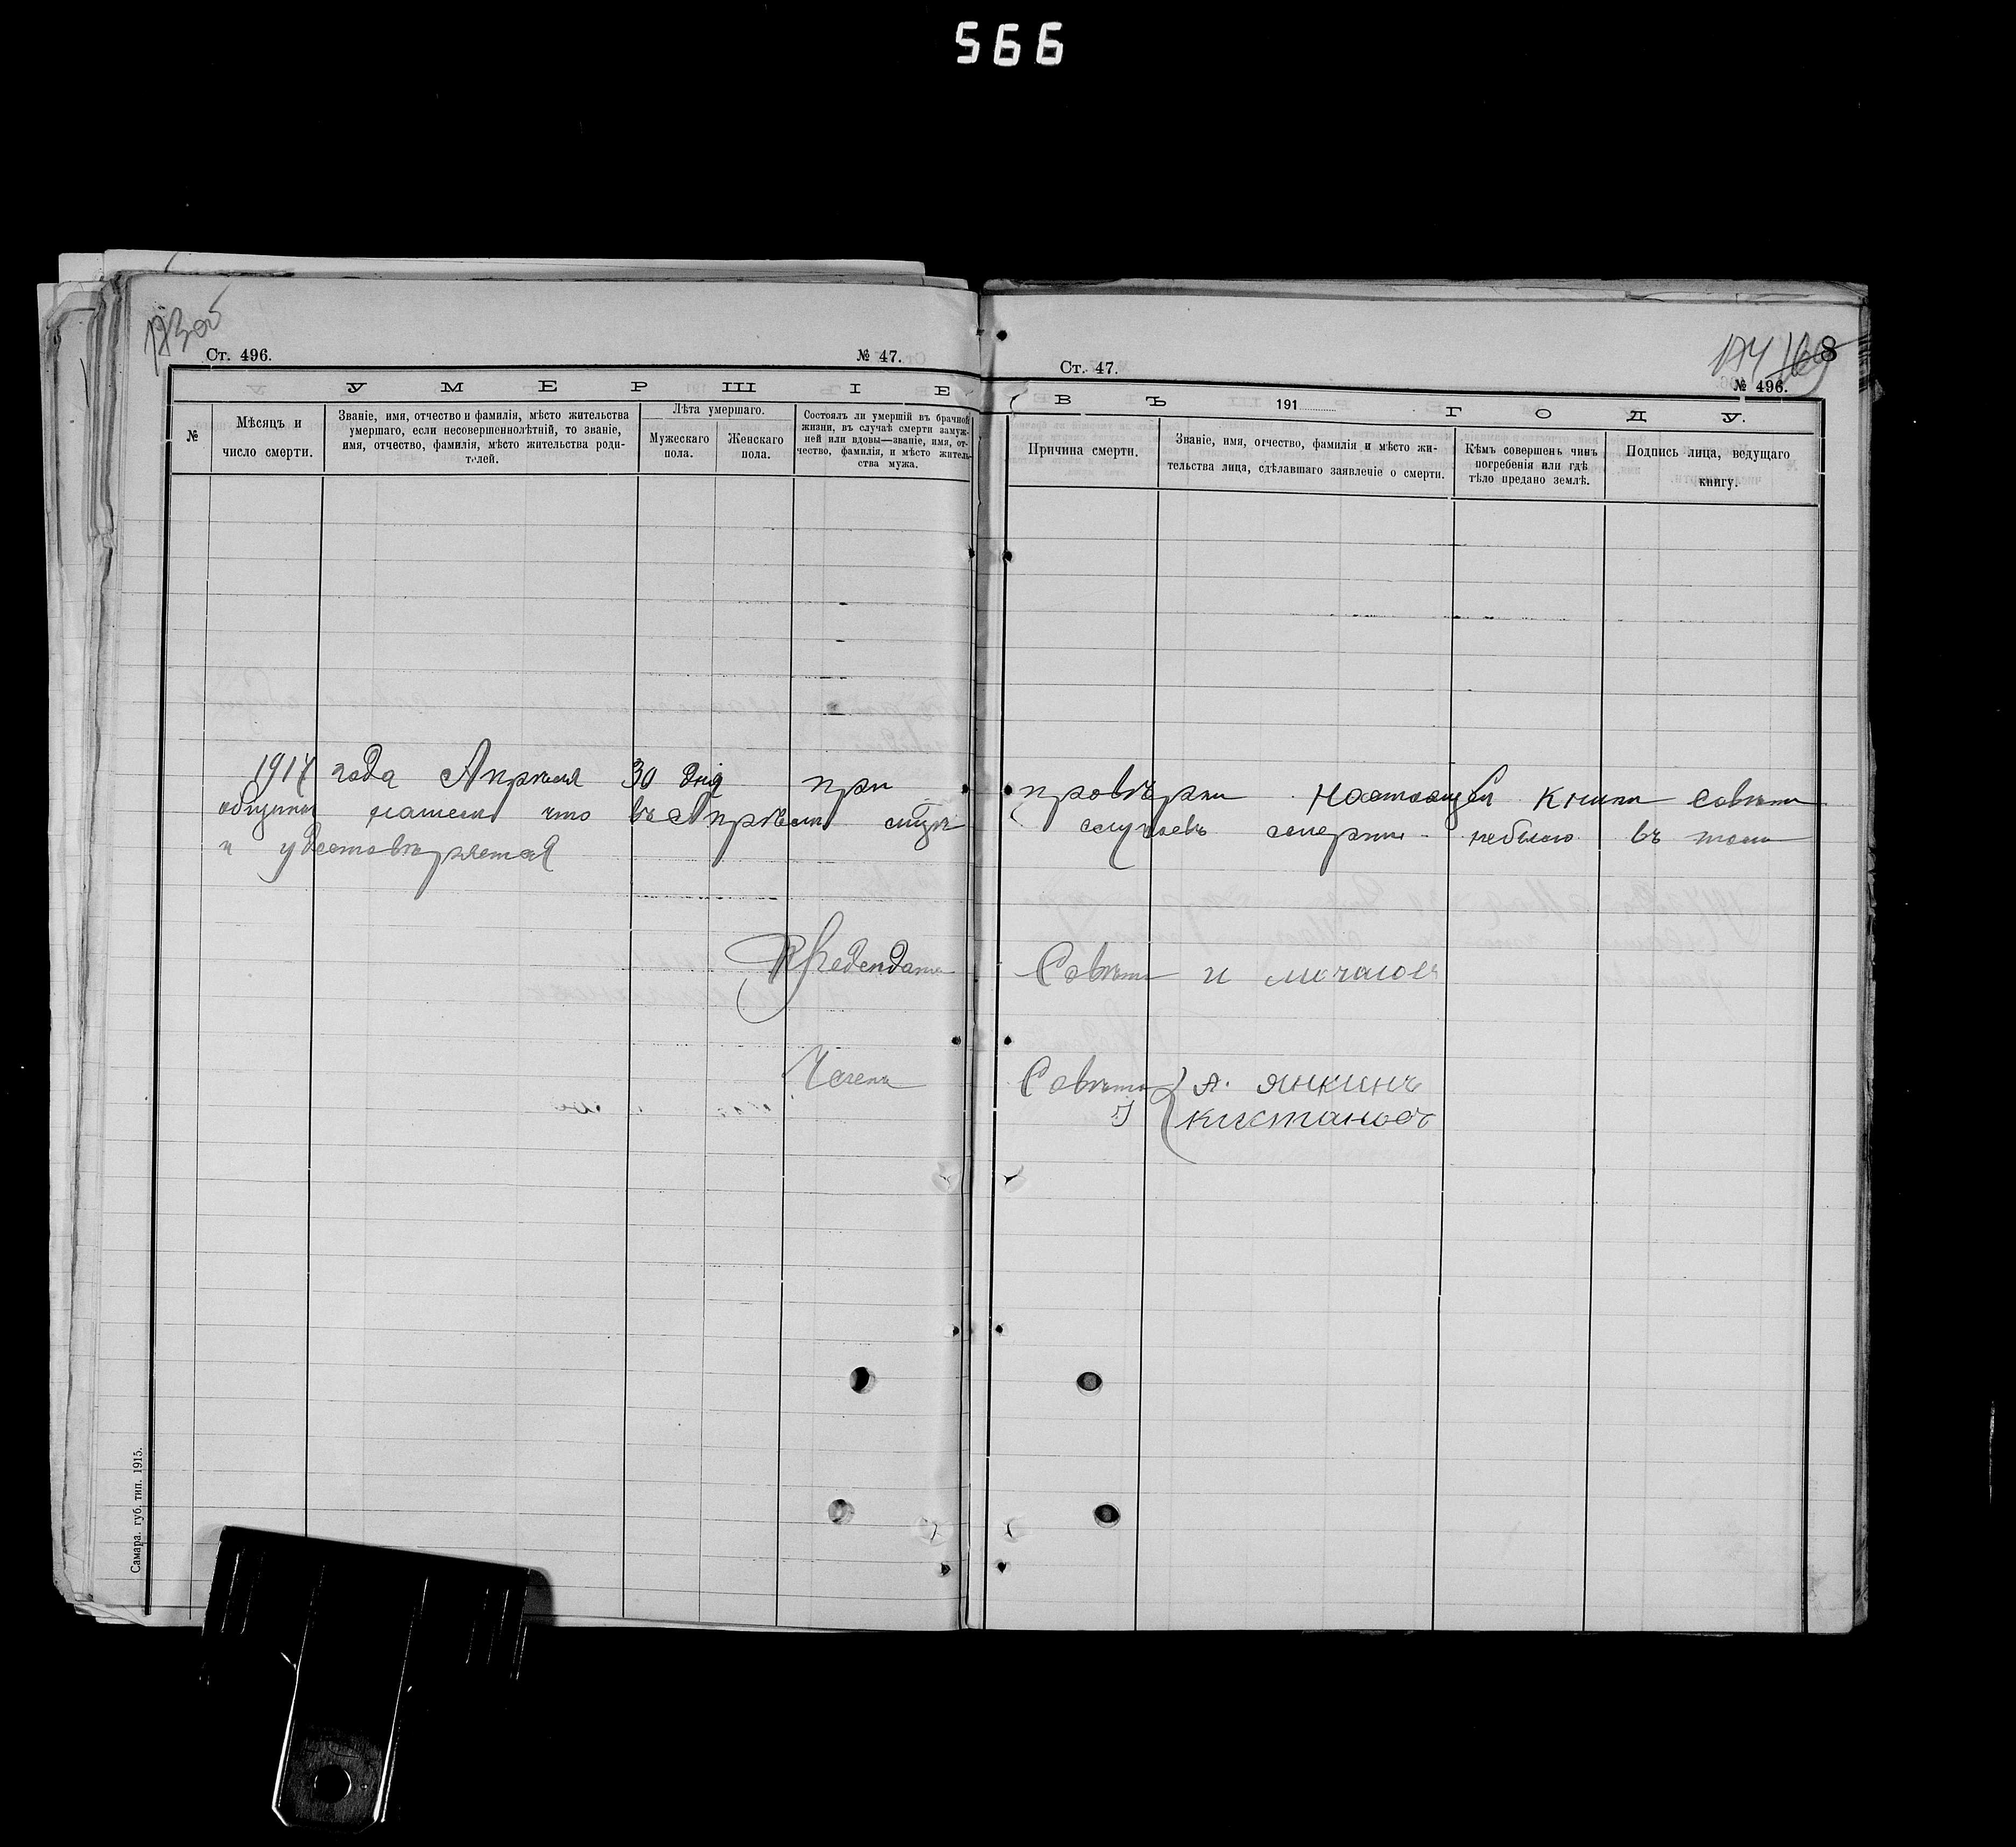 566
173об
Ст. 496.
№ 47.
У М Е Р Ш І Е
№
Мѣсяцъ и
число смерти.
Званіе, имя, отчество и фамилія, мѣсто жительства
умершаго, если несовершеннолѣтній, то званіе,
имя, отчество, фамилія, мѣсто жительства роди-
телей.
Лѣта умершаго.
Мужескаго
пола.
Женскаго
пола.
Состоялъ ли умершій въ брачной
жизни, въ случаѣ смерти замуж-
ней или вдовы—званіе, имя, от-
чество, фамилія, и мѣсто житель-
ства мужа.
Ст. 47.
174 169
8
№ 496.
В Ъ 191 Г О Д У.
Причина смерти.
Званіе, имя, отчество, фамилія и мѣсто жи-
тельства лица, сдѣлавшаго заявленіе о смерти.
Кѣмъ совершенъ чинъ
погребенія или гдѣ
тѣло предано землѣ.
Подпись лица, ведущаго
книгу.
1917 года Апрѣля 30 дня при провѣрки настоящей книги совѣтъ
общины нашелъ что въ Апрѣли случаевъ смерти небыло въ томъ
и удостовѣряется
Совѣта
Членъ Совѣта А. Янкинъ
Кистановъ
Самара. губ. тип. 1915.